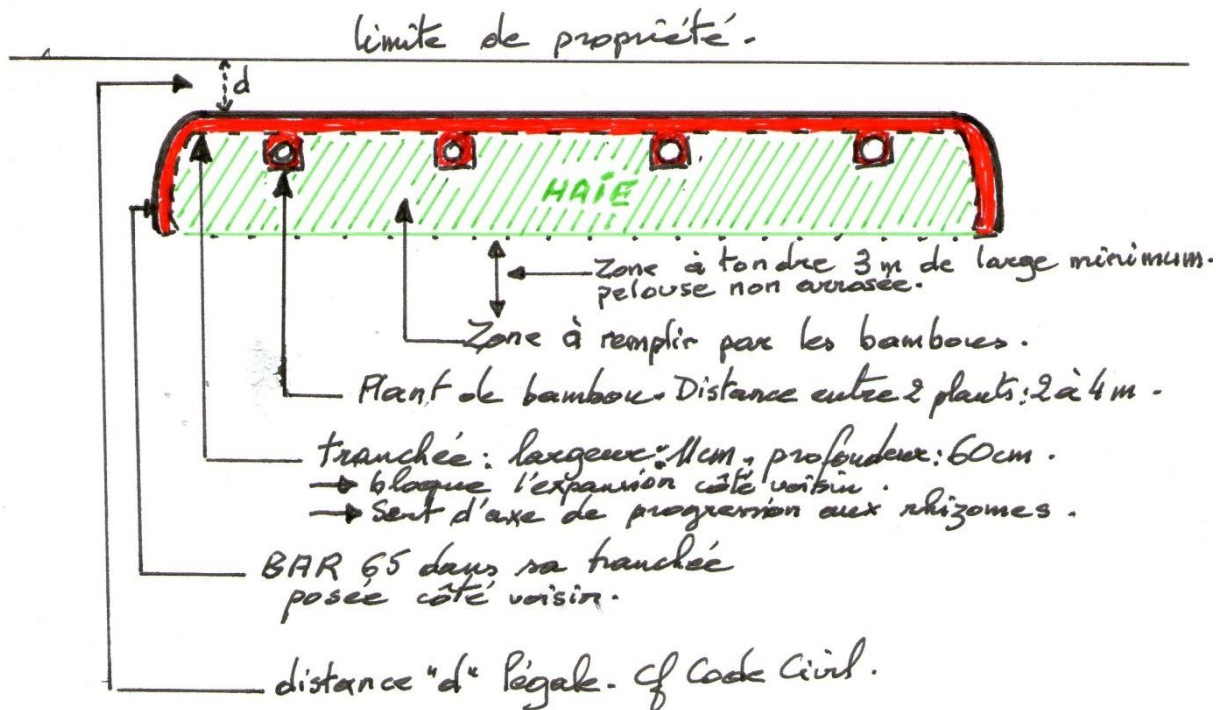 limite de propriété.
d
HAIE
Zone à tondre 3 m de large minimum.
pelouse non arrosée.
Zone à remplir par les bambous.
Plant de bambou. Distance entre 2 plants : 2 à 4 m.
tranchée : largeur : 11cm, profondeur : 60cm.
→ bloque l'expansion côté voisin.
→ Sert d'axe de progression aux rhizomes.
BAR 65 dans sa tranchée
posée côté voisin.
distance "d" légale. cf Code Civil.